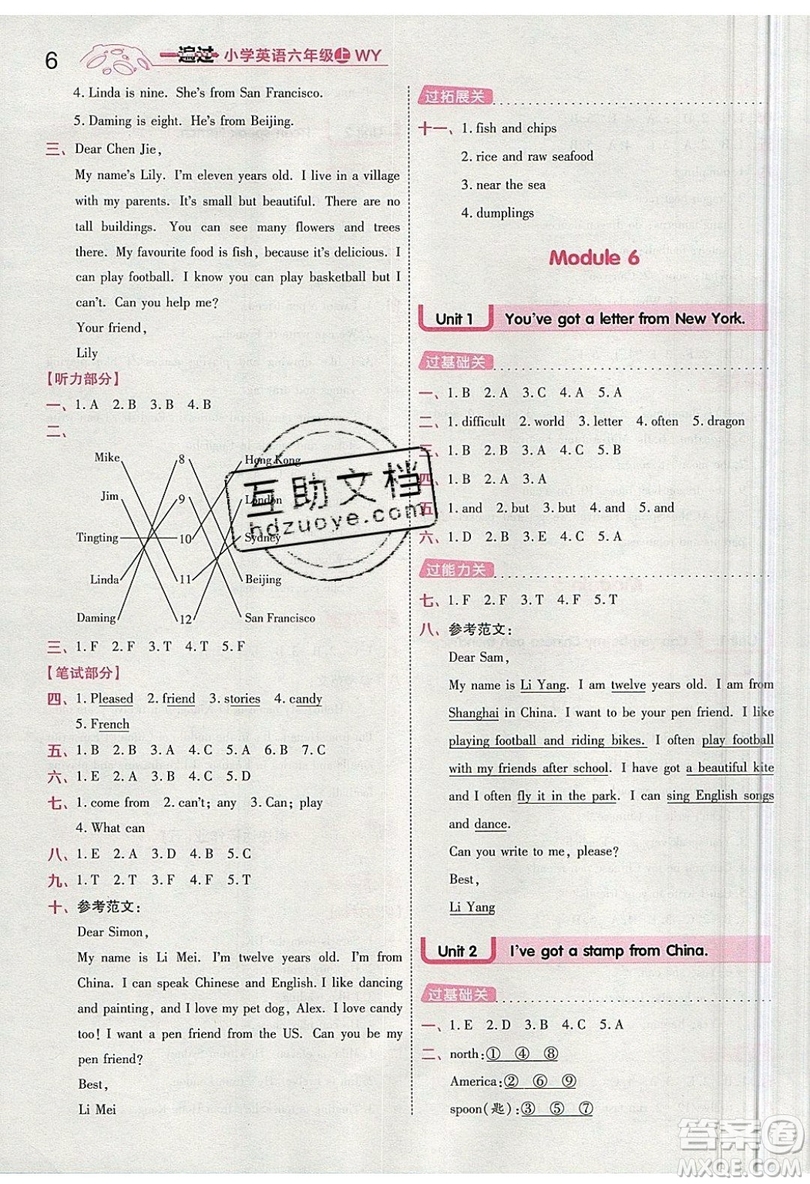 6
一遍过 小学英语六年级上 WY
4. Linda is nine. She's from San Francisco.
5. Daming is eight. He's from Beijing.
三、Dear Chen Jie,
My name's Lily. I'm eleven years old. I live in a village
with my parents. It's small but beautiful. There are no
tall buildings. You can see many flowers and trees
there. My favourite food is fish, because it's delicious. I
can play football. I enjoy reading books but I
can't. Can you help me?
Your friend,
Lily
【听力部分】
一、1. A 2. B 3. A 4. B
二、
Mike 8 Hong Kong
Jim 9 London
Tingting 10 Sydney
Linda 11 Beijing
Daming 12 San Francisco
三、1. F 2. F 3. T 4. T 5. F
【笔试部分】
四、1. Pleased 2. friend 3. stories 4. candy
5. French
五、1. B 2. B 3. A 4. C 5. A 6. B 7. C
六、1. E 2. A 3. D 4. C 5. B
七、1. come from 2. can't; any 3. Can; play
4. What can
八、1. E 2. A 3. D 4. B 5. C
九、1. T 2. T 3. F 4. F 5. T
十、参考范文:
Dear Simon,
My name is Li Mei. I'm twelve years old. I'm from
China. I can speak Chinese and English. I like dancing
and painting, and I love my pet dog, Alex. I love candy
too! I want a pen friend from the US. Can you be my
pen friend?
Best,
Li Mei
过拓展关
十一、1. fish and chips
2. rice and raw seafood
3. near the sea
4. dumplings
Module 6
Unit 1 You've got a letter from New York.
过基础关
一、1. B 2. A 3. C 4. A 5. A
二、1. difficult 2. world 3. letter 4. often 5. dragon
三、1. B 2. B 3. A 4. B 5. A
四、1. B 2. A 3. A
五、1. and 2. but 3. but 4. and 5. and
六、1. D 2. B 3. A 4. E 5. C
过能力关
七、1. F 2. F 3. T 4. F 5. T
八、参考范文:
Dear Sam,
My name is Li Yang. I am twelve years old. I am from
Shanghai in China. I want to be your pen friend. I like
playing football and riding bikes. I often play football
with my friends after school. I have got a beautiful kite
and I often fly it in the park. I can sing English songs
and dance.
Can you write to me, please?
Best,
Li Yang
Unit 2 I've got a stamp from China.
过基础关
一、1. E 2. D 3. B 4. C 5. A
二、north:① ④ ⑧
America:② ⑥ ⑨
spoon(匙):③ ⑤ ⑦
互助文档
hdzuoye.com
答案圈
MXQE.COM